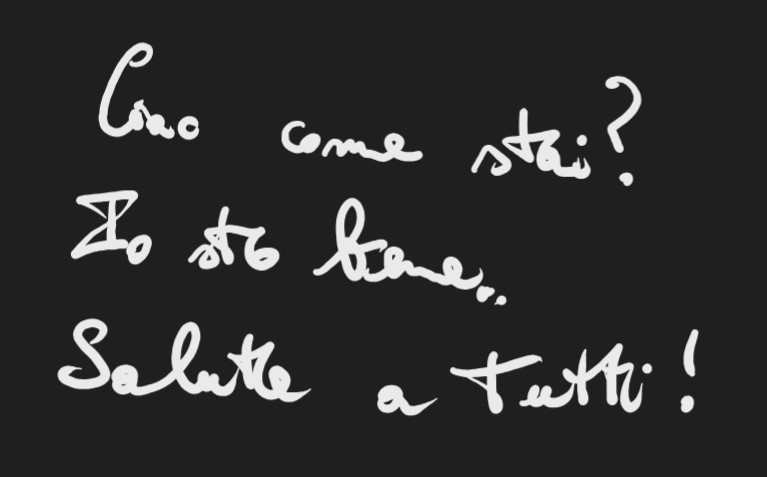 Ciao come stai?
Io sto bene...
Salute a tutti!